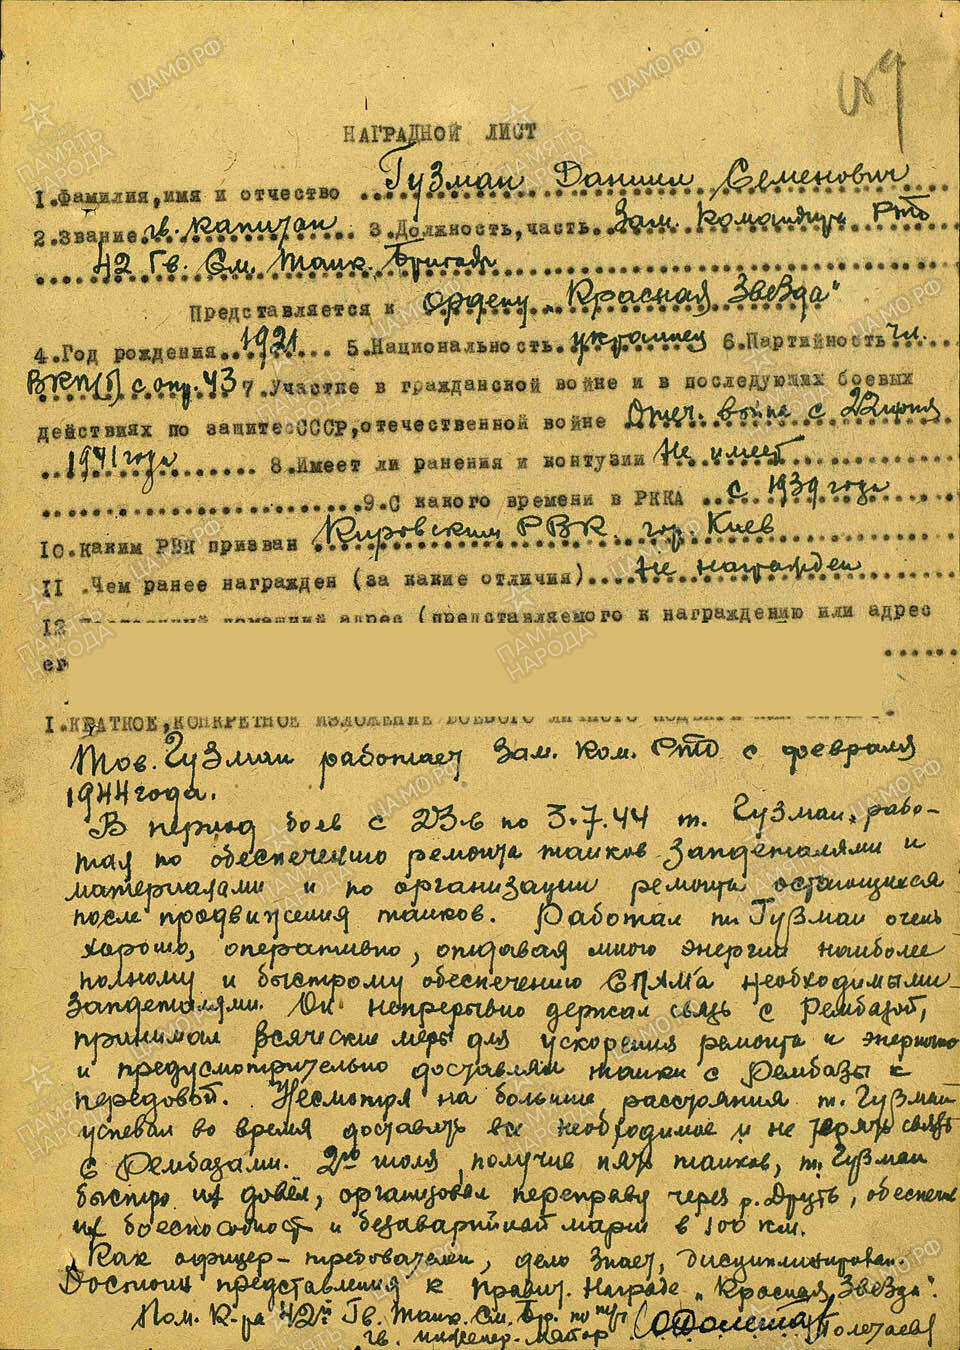 НАГРАДНОЙ ЛИСТ
1.Фамилия,имя и отчество Гузман Даниил Семенович
2.Звание гв. капитан 3.Должность,часть Зам. Командира РТО
42 Гв. См. Танк. Бригады
Представляется к ордену „Красная Звезда"
4.Год рождения 1921 5.Национальность украинец 6.Партийность чл.
ВКП(б) с 43 7.Участие в гражданской войне и в последующих боевых
действиях по защите СССР,отечественной войне Отеч. война с 22 июня
1941 года 8.Имеет ли ранения и контузии Не имеет
9.С какого времени в РККА с 1939 года
10.каким РВК призван Кировским РВК гор. Киев
11 .Чем ранее награжден (за какие отличия) Не награжден
12 домашний адрес (представляемого к награждению или адрес
ег
1.КРАТКОЕ,КОНКРЕТНОЕ ИЗЛОЖЕНИЕ БОЕВОГО ЛИЧНОГО ПОДВИГА ИЛИ
Тов. Гузман работает Зам. Ком. РТО с февраля
1944 года.
В период боев с 23.6 по 3.7.44 т. Гузман рабо-
тал по обеспечению ремонта танков запдеталями и
материалами и по организации ремонта остающихся
после продвижения танков. Работал т. Гузман очень
хорошо, оперативно, отдавая много энергии наиболее
полному и быстрому обеспечению СПАМа необходимыми
запдеталями. Он непрерывно держал связь с Рембазой,
принимал всяческие меры для ускорения ремонта и энергично
и предусмотрительно доставлял танки с Рембазы к
передовой. Несмотря на большие расстояния т. Гузман
успевал во время доставлять все необходимое и не терять связь
с Рембазами. 2го июля, получив пять танков, т. Гузман
быстро их довёл, организовал переправу через р. Друть, обеспечив
их боеспособност и безаварийный марш в 100 км.
Как офицер – требователен, дело знает, дисциплинирован.
Достоин представления к правит. награде „Красная Звезда".
Пом. К-ра 42й Гв. Танк. См. Бр. по т/ч
гв. инженер-майор Полетаев
ПАМЯТЬ НАРОДА
ЦАМО.РФ